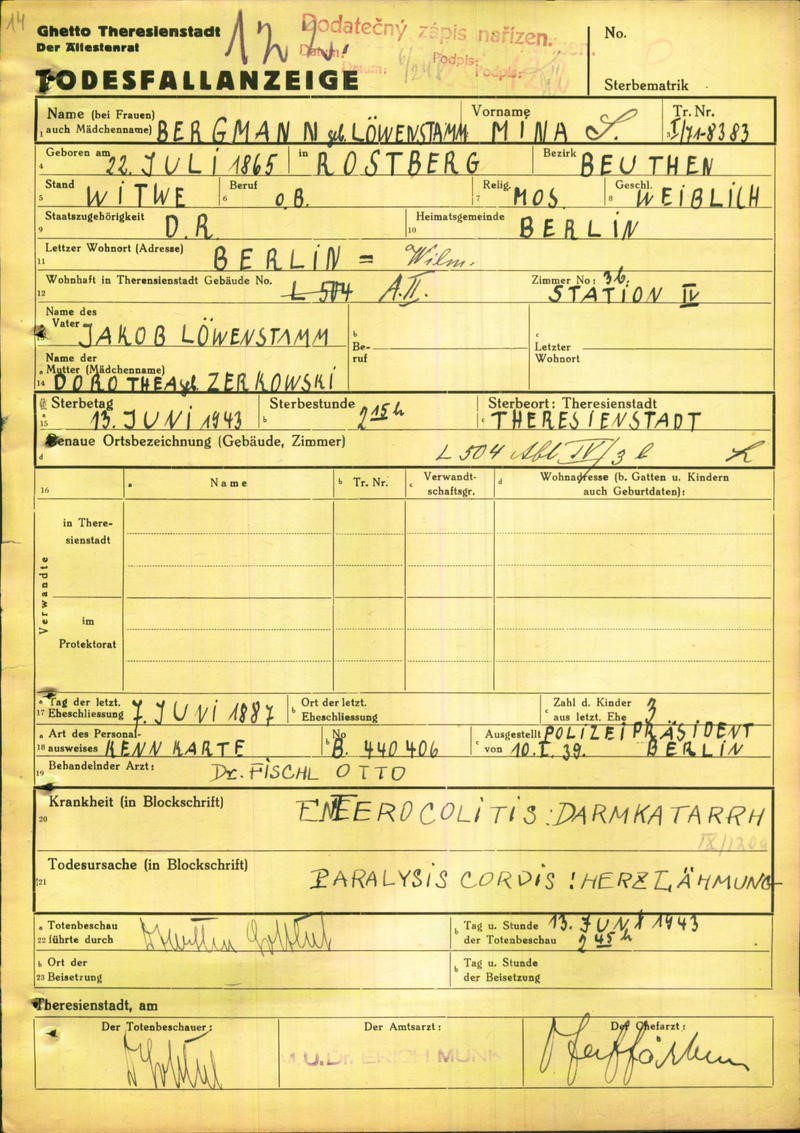 14
Ghetto Theresienstadt
Der Ältestenrat
Dodatečný zápis nařízen.
Datum: Podpis:
No.
TODESFALLANZEIGE
Sterbematrik
Name (bei Frauen) auch Mädchenname) BERGMANN geb. LÖWENSTAMM
Vorname MINA S.
Tr. Nr. I/71-8383
Geboren am 22. JULI 1865 in ROSTBERG Bezirk BEUTHEN
Stand WITWE Beruf o.B. Relig. MOS. Geschl. WEIBLICH
Staatszugehörigkeit D.R. Heimatsgemeinde BERLIN
Lettzer Wohnort (Adresse) BERLIN = Wilm.
Wohnhaft in Theresienstadt Gebäude No. L 504 A.II. Zimmer No: 36. STATION IV
Name des Vater JAKOB LÖWENSTAMM
b Beruf
c Letzter Wohnort
Name der Mutter (Mädchenname) DOROTHEA geb. ZERKOWSKI
Sterbetag 13. JUNI 1943 Sterbestunde 2 15 h Sterbeort: Theresienstadt THERESIENSTADT
Genaue Ortsbezeichnung (Gebäude, Zimmer) L 504 Abt IV/3 b
16 a Name b Tr. Nr. c Verwandtschaftsgr. d Wohnadresse (b. Gatten u. Kindern auch Geburtdaten):
Verwandte
in Theresienstadt
im Protektorat
Tag der letzt. Eheschliessung 7. JUNI 1887 Ort der letzt. Eheschliessung Zahl d. Kinder aus letzt. Ehe 3
Art des Personalausweises KENNKARTE No B. 440406 Ausgestellt von POLIZEIPRÄSIDENT
10. I. 39. BERLIN
Behandelnder Arzt: Dr. FISCHL OTTO
Krankheit (in Blockschrift) ENTEROCOLITIS : DARMKATARRH
Todesursache (in Blockschrift) PARALYSIS CORDIS ! HERZLÄHMUNG
Totenbeschau führte durch
Tag u. Stunde der Totenbeschau 13. JUNI 1943 2 45 h
Ort der Beisetzung
Tag u. Stunde der Beisetzung
Theresienstadt, am
Der Totenbeschauer: Der Amtsarzt: Der Chefarzt:
M.U.Dr. ERICH MUNK